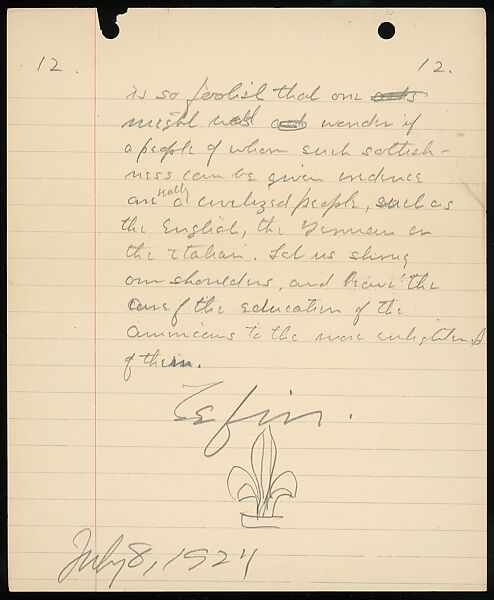 12.
12.
is so foolish that one
might well wonder if
a people of whom such sottish-
ness can be given evidence
are really a civilized people, such as
the English, the German or
the Italian. Let us shrug
our shoulders, and leave the
care of the education of the
Americans to the more enlightened
of them.
La fin.
July 8, 1924